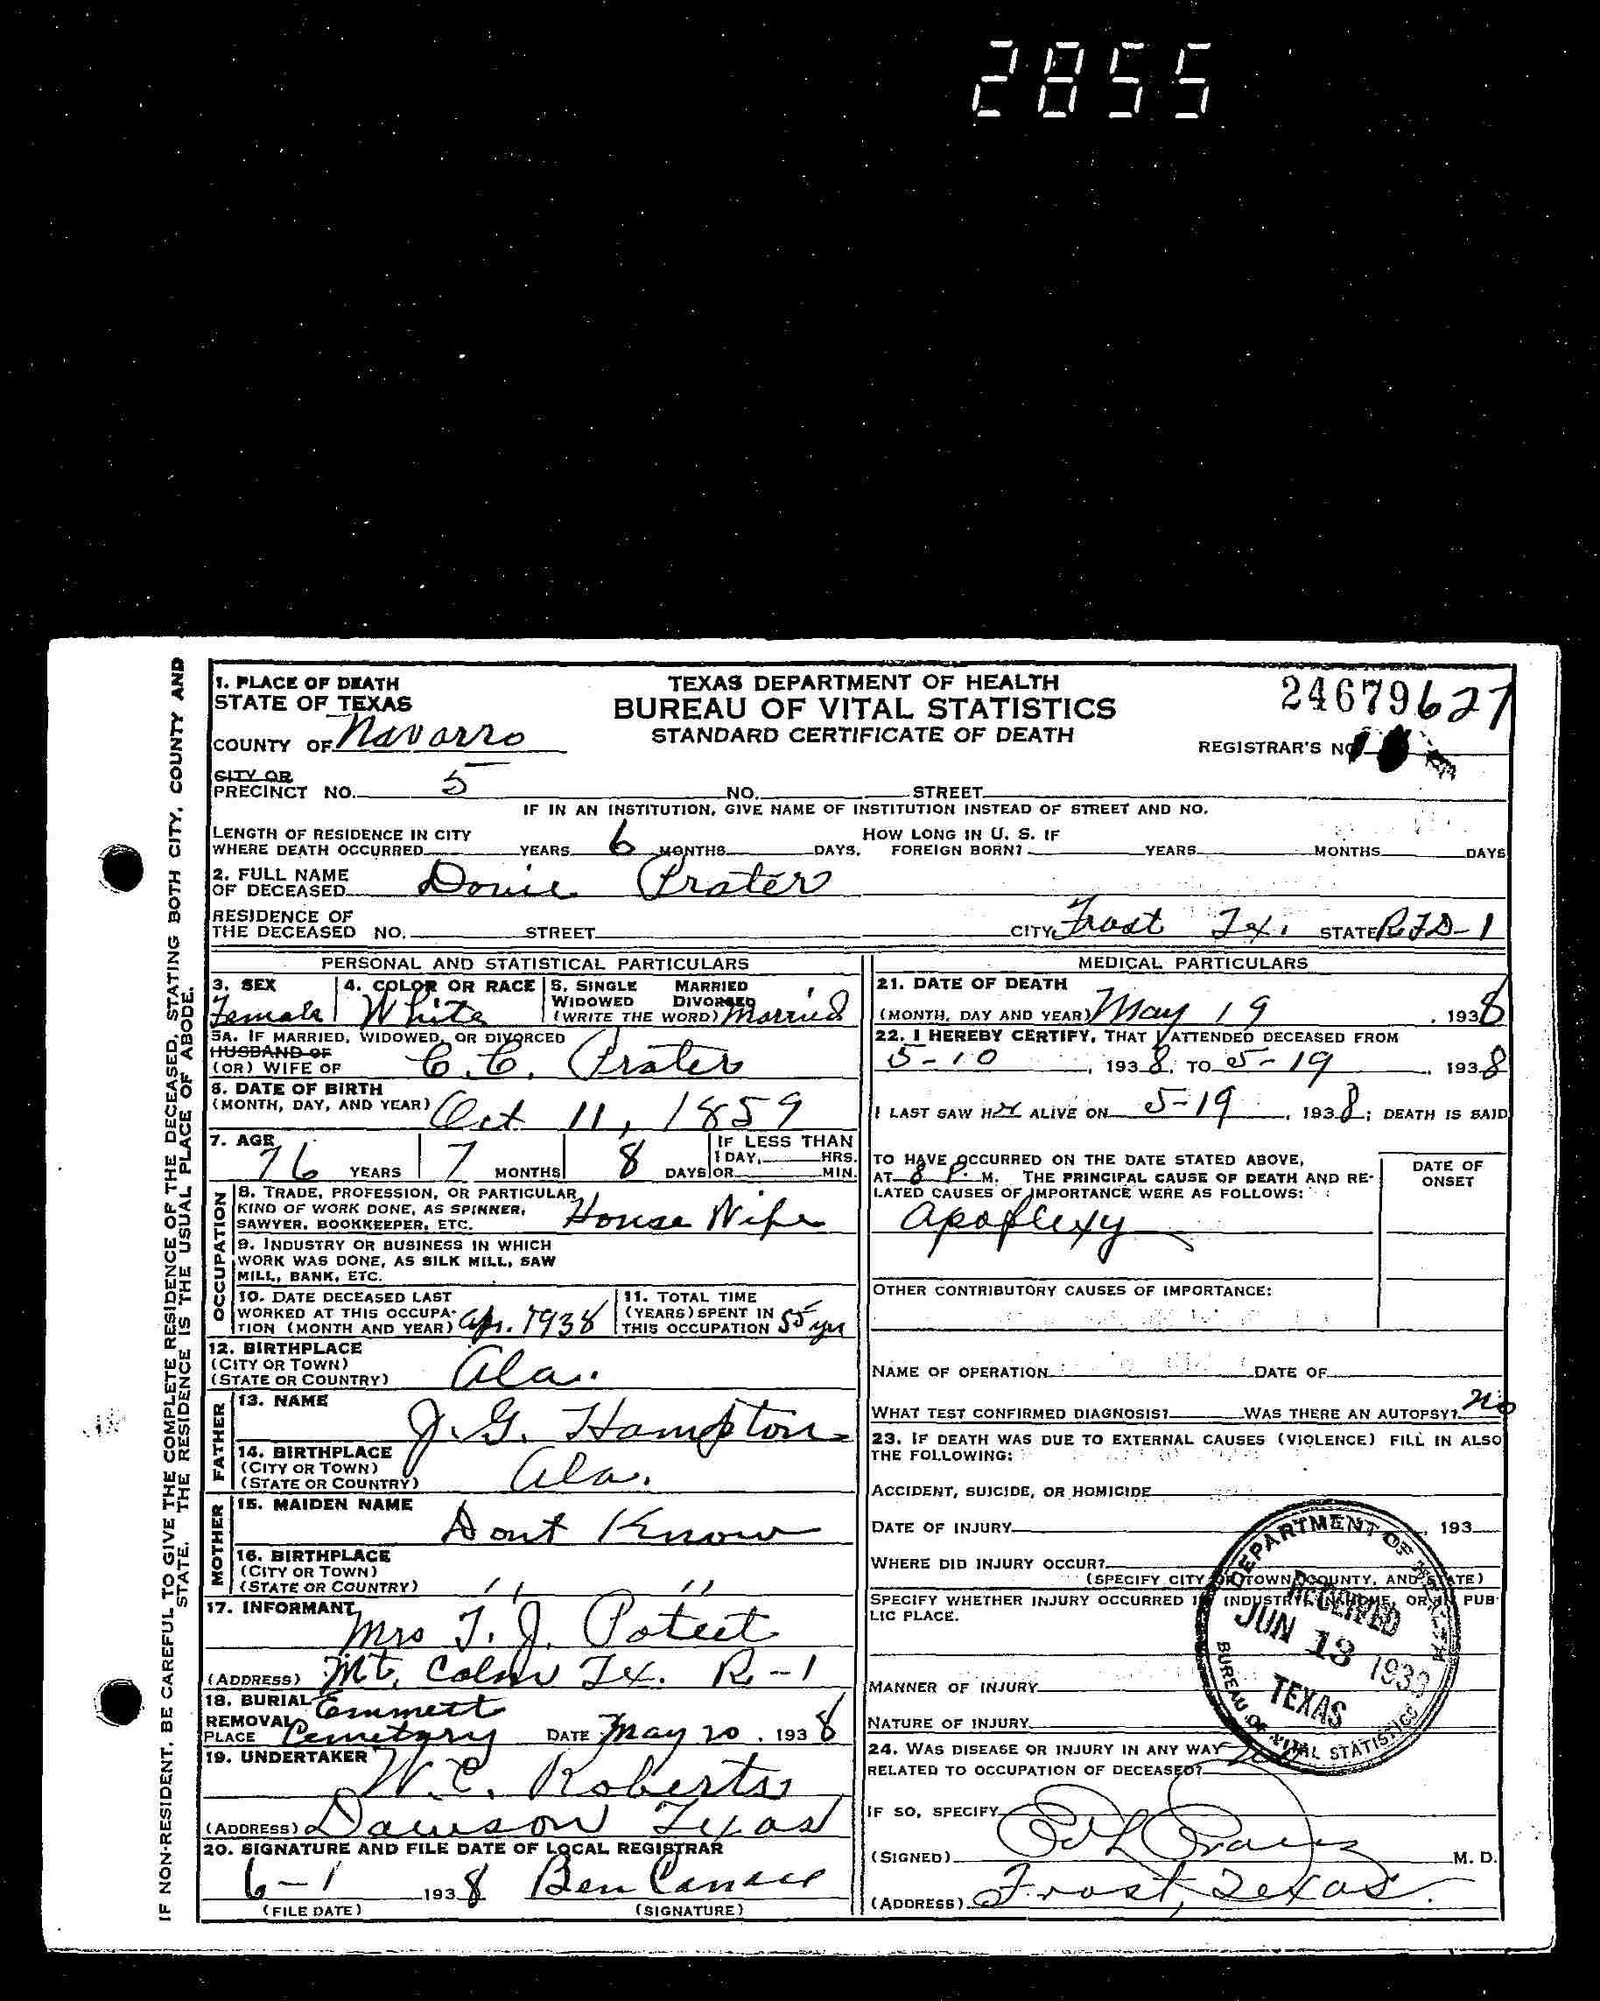 2855
IF NON-RESIDENT, BE CAREFUL TO GIVE THE COMPLETE RESIDENCE OF THE DECEASED, STATING BOTH CITY, COUNTY AND
STATE. THE RESIDENCE IS THE USUAL PLACE OF ABODE.
1. PLACE OF DEATH
STATE OF TEXAS
COUNTY OF Navarro
TEXAS DEPARTMENT OF HEALTH
BUREAU OF VITAL STATISTICS
STANDARD CERTIFICATE OF DEATH
24679 627
REGISTRAR'S NO
CITY OR
PRECINCT NO. 5 NO. STREET
IF IN AN INSTITUTION, GIVE NAME OF INSTITUTION INSTEAD OF STREET AND NO.
LENGTH OF RESIDENCE IN CITY
WHERE DEATH OCCURRED YEARS 6 MONTHS DAYS.
HOW LONG IN U. S. IF
FOREIGN BORN? YEARS MONTHS DAYS
2. FULL NAME
OF DECEASED Donie Prater
RESIDENCE OF
THE DECEASED NO. STREET CITY Frost Tex. STATE RFD-1
PERSONAL AND STATISTICAL PARTICULARS
3. SEX
Female
4. COLOR OR RACE
White
5. SINGLE MARRIED
WIDOWED DIVORCED
(WRITE THE WORD) Married
5A. IF MARRIED, WIDOWED, OR DIVORCED
HUSBAND OF
(OR) WIFE OF C. C. Prater
6. DATE OF BIRTH
(MONTH, DAY, AND YEAR) Oct 11, 1859
7. AGE
76 YEARS 7 MONTHS 8 DAYS
IF LESS THAN
1 DAY, HRS.
OR MIN.
OCCUPATION
8. TRADE, PROFESSION, OR PARTICULAR
KIND OF WORK DONE, AS SPINNER,
SAWYER, BOOKKEEPER, ETC. House Wife
9. INDUSTRY OR BUSINESS IN WHICH
WORK WAS DONE, AS SILK MILL, SAW
MILL, BANK, ETC.
10. DATE DECEASED LAST
WORKED AT THIS OCCUPA-
TION (MONTH AND YEAR) Apr. 1938
11. TOTAL TIME
(YEARS) SPENT IN
THIS OCCUPATION 55 yrs
12. BIRTHPLACE
(CITY OR TOWN)
(STATE OR COUNTRY) Ala.
FATHER
13. NAME
J. G. Hampton
14. BIRTHPLACE
(CITY OR TOWN)
(STATE OR COUNTRY) Ala.
MOTHER
15. MAIDEN NAME
Dont Know
16. BIRTHPLACE
(CITY OR TOWN)
(STATE OR COUNTRY) " "
17. INFORMANT
Mrs T. J. Poteet
(ADDRESS) Mt. Calm Tex. R-1
18. BURIAL Emmett
REMOVAL
PLACE Cemetary DATE May 20, 1938
19. UNDERTAKER
W. C. Roberts
(ADDRESS) Dawson Texas
20. SIGNATURE AND FILE DATE OF LOCAL REGISTRAR
6-1 1938 Ben
(FILE DATE) (SIGNATURE)
MEDICAL PARTICULARS
21. DATE OF DEATH
(MONTH, DAY AND YEAR) May 19, 1938
22. I HEREBY CERTIFY, THAT I ATTENDED DECEASED FROM
5-10, 1938, TO 5-19, 1938
I LAST SAW HER ALIVE ON 5-19, 1938; DEATH IS SAID
TO HAVE OCCURRED ON THE DATE STATED ABOVE,
AT 8 P. M. THE PRINCIPAL CAUSE OF DEATH AND RE-
LATED CAUSES OF IMPORTANCE WERE AS FOLLOWS:
DATE OF
ONSET
Apoplexy
OTHER CONTRIBUTORY CAUSES OF IMPORTANCE:
NAME OF OPERATION DATE OF
WHAT TEST CONFIRMED DIAGNOSIS? WAS THERE AN AUTOPSY? no
23. IF DEATH WAS DUE TO EXTERNAL CAUSES (VIOLENCE) FILL IN ALSO
THE FOLLOWING:
ACCIDENT, SUICIDE, OR HOMICIDE
DATE OF INJURY , 193
WHERE DID INJURY OCCUR?
(SPECIFY CITY OR TOWN, COUNTY, AND STATE)
SPECIFY WHETHER INJURY OCCURRED IN INDUSTRY, IN HOME, OR IN PUB-
LIC PLACE.
MANNER OF INJURY
NATURE OF INJURY
24. WAS DISEASE OR INJURY IN ANY WAY
RELATED TO OCCUPATION OF DECEASED?
IF SO, SPECIFY
(SIGNED) M. D.
(ADDRESS) Frost, Texas.
DEPARTMENT OF HEALTH
RECEIVED
JUN 13 1938
TEXAS
BUREAU OF VITAL STATISTICS